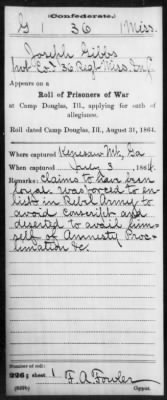 (Confederate.)
G | 36 | Miss.
Joseph Gibbs
Pvt Co. G 36 Regt Miss. Inf.
Appears on a
Roll of Prisoners of War
at Camp Douglas, Ill., applying for oath of
allegiance.
Roll dated Camp Douglas, Ill., August 31, 1864.
Where captured Kenesaw Mt. Ga
When captured July 3, 1864.
Remarks: Claims to have been
loyal. Was forced to en-
list in Rebel Army to
avoid Conscript and
deserted to avail him-
self of Amnesty Proc-
lamation &c.
Number of roll:
226; sheet 1
F. A. Fowler
Copyist.